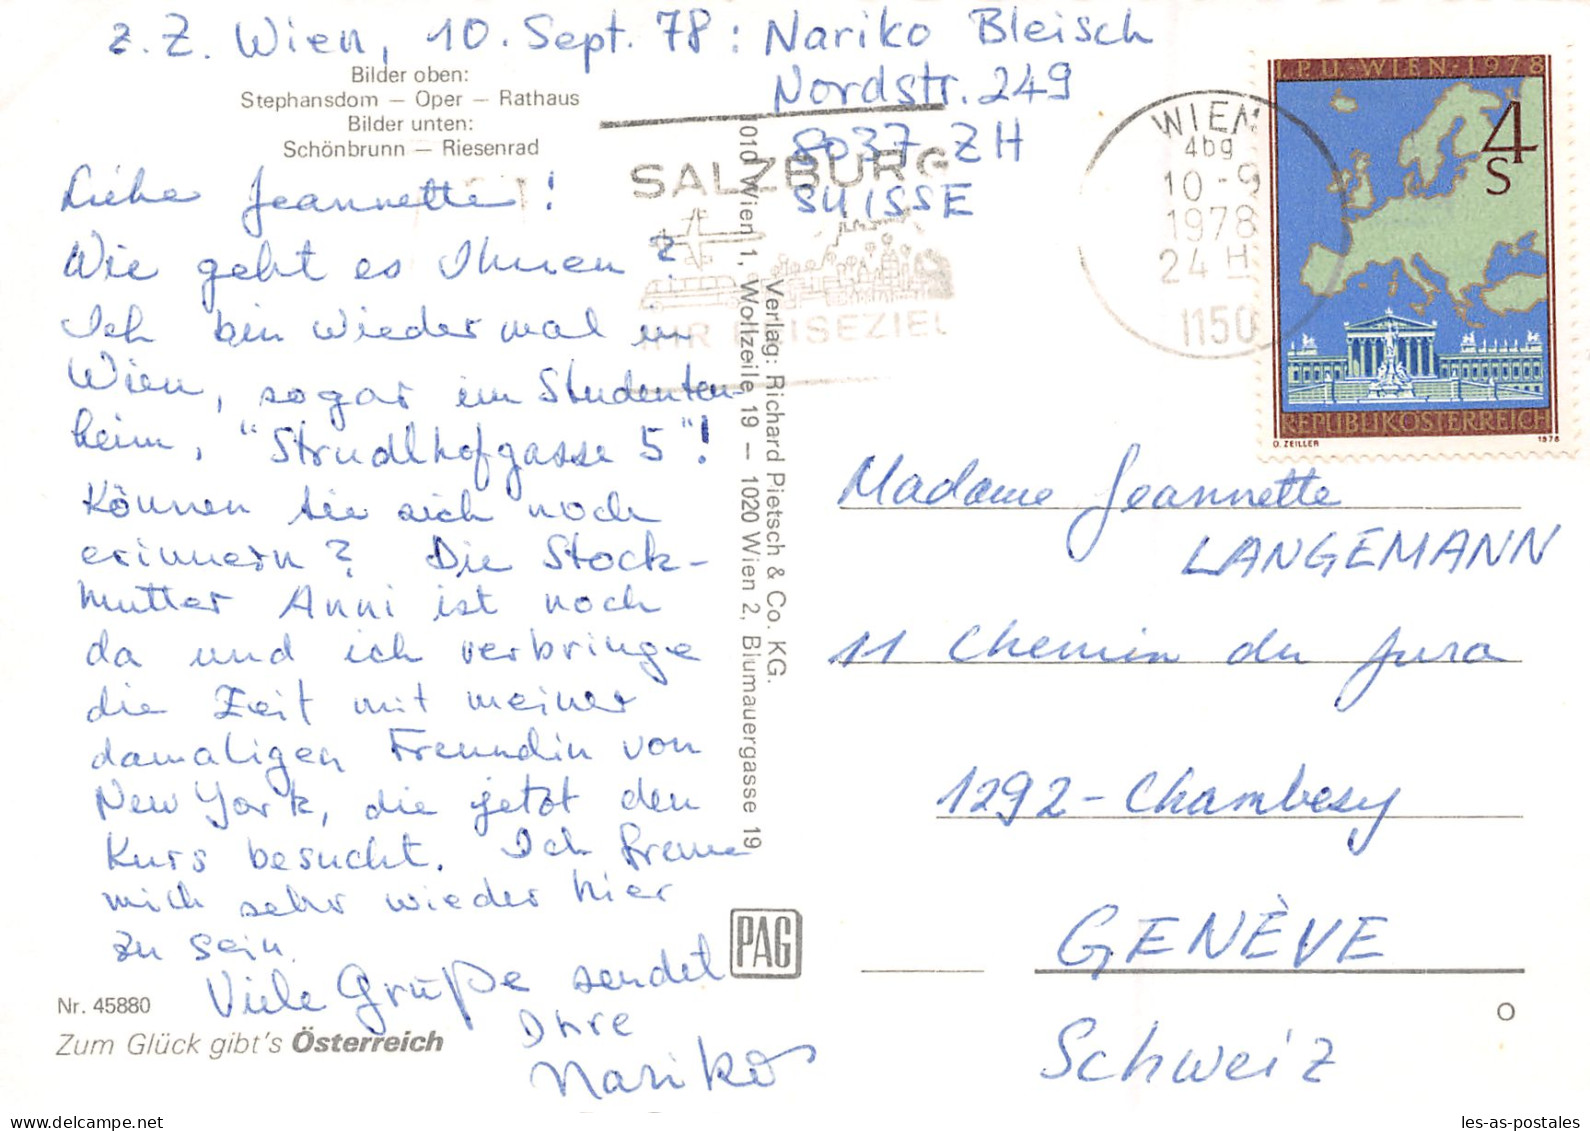 z.Z. Wien, 10. Sept. 78: Nariko Bleisch
Nordstr. 249
8037 ZH
SUISSE
Bilder oben:
Stephansdom – Oper – Rathaus
Bilder unten:
Schönbrunn – Riesenrad
Liebe Jeannette!
Wie geht es Ihnen?
Ich bin wieder mal in
Wien, sogar im Studenten-
heim, "Strudlhofgasse 5"!
Können Sie sich noch
erinnern? Die Stock-
mutter Anni ist noch
da und ich verbringe
die Zeit mit meiner
damaligen Freundin von
New York, die jetzt den
Kurs besucht. Ich freue
mich sehr wieder hier
zu sein.
Viele Grüße sendet
Ihre
Nariko
Nr. 45880
Zum Glück gibt's Österreich
Verlag: Richard Pietsch & Co. KG.
1010 Wien 1, Wollzeile 19 – 1020 Wien 2, Blumauergasse 19
PAG
SALZBURG
IHR REISEZIEL
WIEN
4bg
10-9
1978
24 H
1150
I.P.U.-WIEN-1978
4
S
REPUBLIK ÖSTERREICH
O. ZEILLER
1978
Madame Jeannette
LANGEMANN
11 Chemin du Jura
1292-Chambesy
GENÈVE
Schweiz
O
les-as-postales